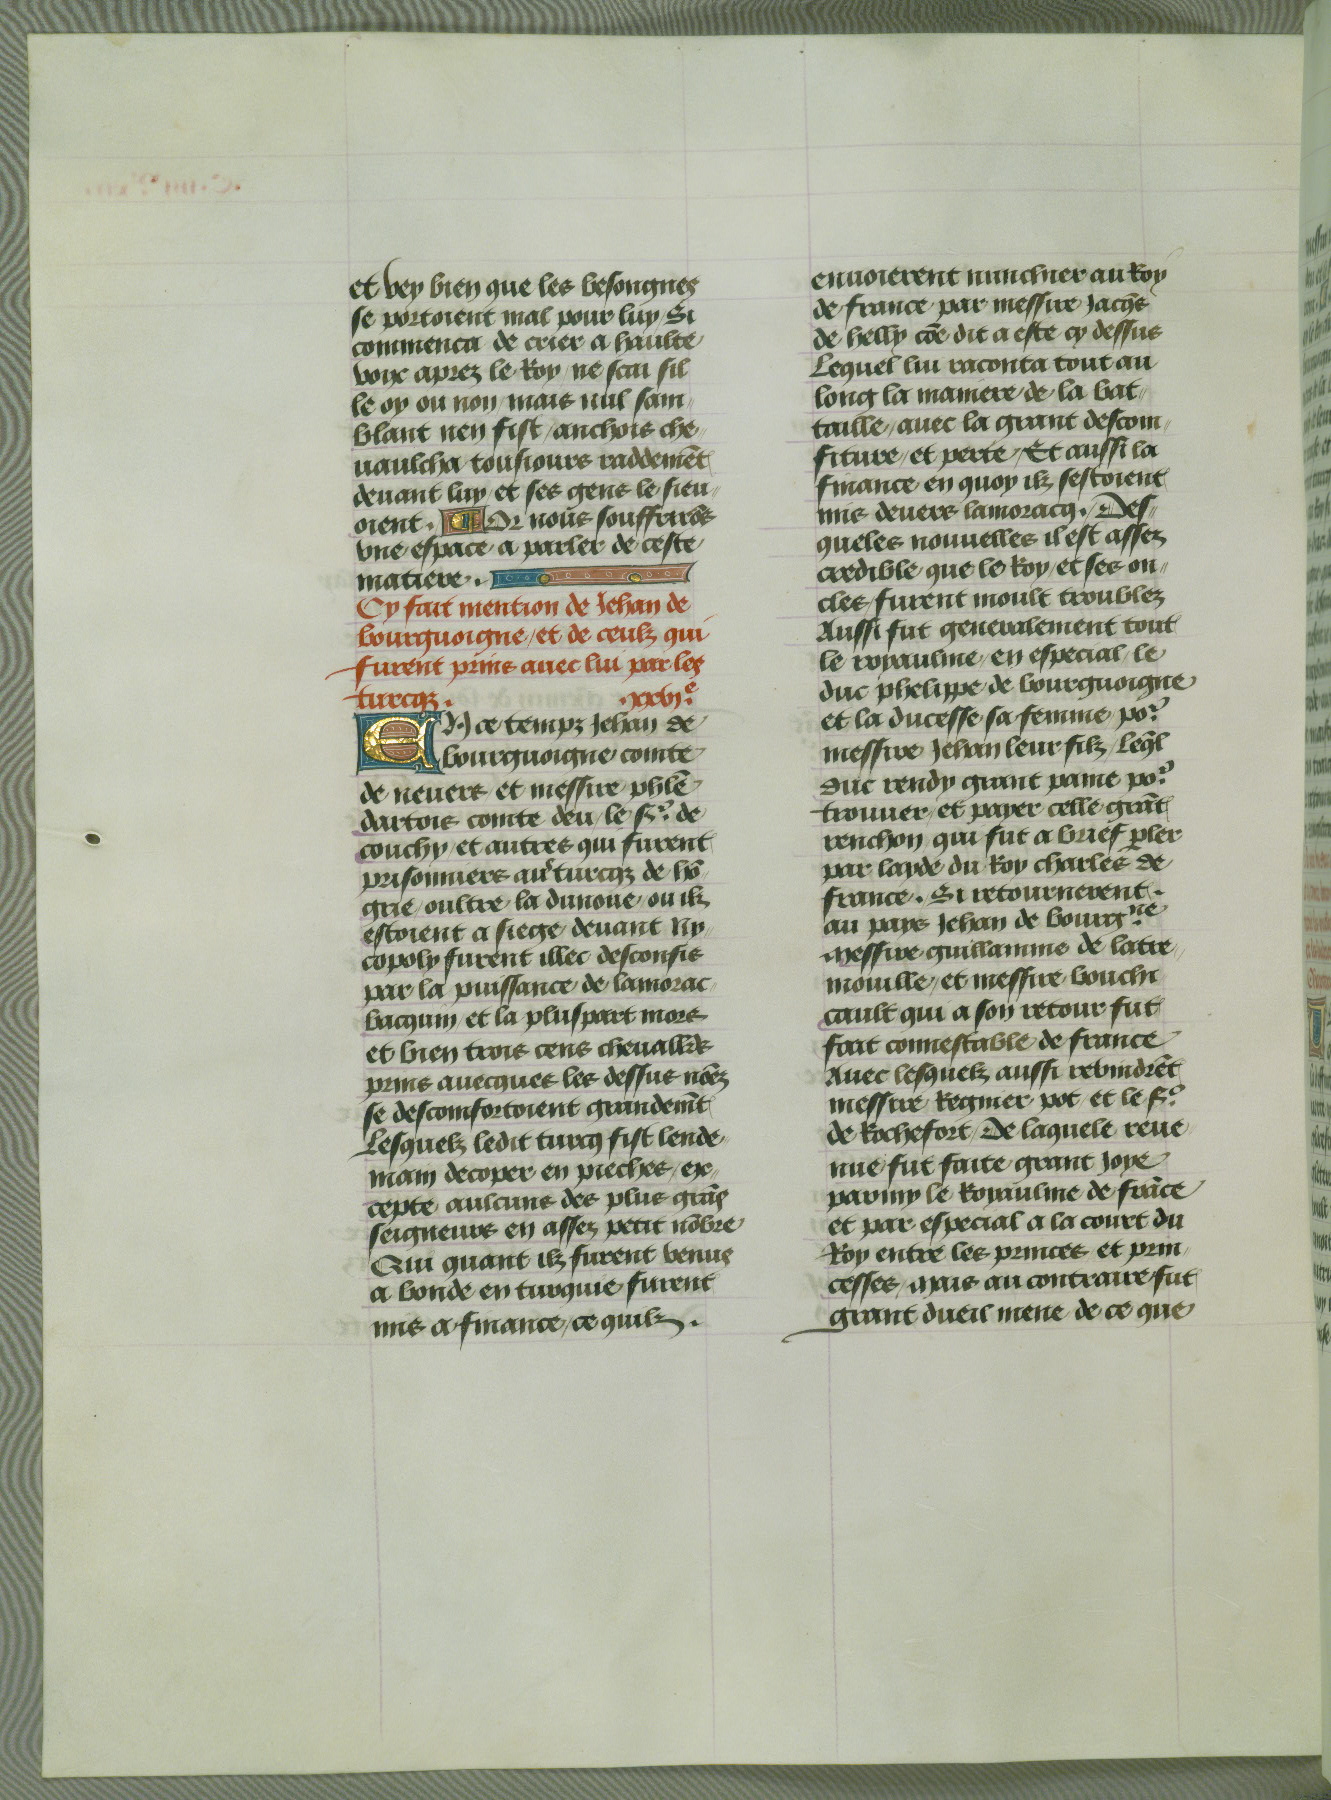 et vey bien que les besongnes
se portoient mal pour luy Si
commenca de crier a haulte
voix aprez le Roy ne scai sil
le oy ou non mais nul sam-
blant nen fist anchois che-
uaulcha tousiours raddemēt
deuant luy et ses gens le sieu-
oient. Or nous souffrirōs
vne espace a parler de ceste
matiere.
Cy fait mention de Jehan de
bourguoigne et de ceulz qui
furent prins auec lui par les
turcqz. .xxvjᵉ.
EN ce tempz Jehan de
bourguoigne comte
de neuers et messire phlē
dartois comte deu le sʳ. de
couchy et autres qui furent
prisonniers au turcqz de hō-
grie oultre la dunoue ou ilz
estoient a siege deuant Ny-
copoly furent illec desconfis
par la puissance de lamorac-
bacquin et la pluspart mors
et bien trois cens cheuallrēs
prins auecques les dessus nōez
se descomfortoient grandemēt
Lesquelz ledit turcq fist lende-
main decoper en pieches ex-
cepte aulcuns des plus grās
seigneurs en assez petit nōbre
Qui quant ilz furent venus
a bonde en turquie furent
mis a finance ce quilz.
enuoierent nunchier au Roy
de france par messire Jacq̄s
de helly cōe dit a este cy dessus
Lequel lui raconta tout au
long la maniere de la bat-
taille auec la grant descom-
fiture et perte Et aussi la
finance en quoy ilz sestoient
mis deuers lamoracq. Des-
queles nouuelles il est assez
credible que le Roy et ses on-
cles furent moult troublez
Aussi fut generalement tout
le royaulme en especial le
duc phelippe de bourguoigne
et la ducesse sa femme poʳ
messire Jehan leur filz Leq̄l
duc rendy grant paine poʳ
trouuer et payer celle grāt
renchon qui fut a brief p̄ler
par layde du Roy charles de
france. Si retournerent.
au pays Jehan de bourgⁿᵉ
Messire guillamme de latre-
mouille et messire bouchi
cault qui a son retour fut
fait connestable de france
Auec lesquelz aussi reuindrēt
messire Regnier pot et le sʳ.
de Rochefort De laquele reue
nue fut faite grant Joye
parmy le Royaulme de frāce
et par especial a la court du
Roy entre les princes et prin-
cesses Mais au contraire fut
grant dueil mene de ce que